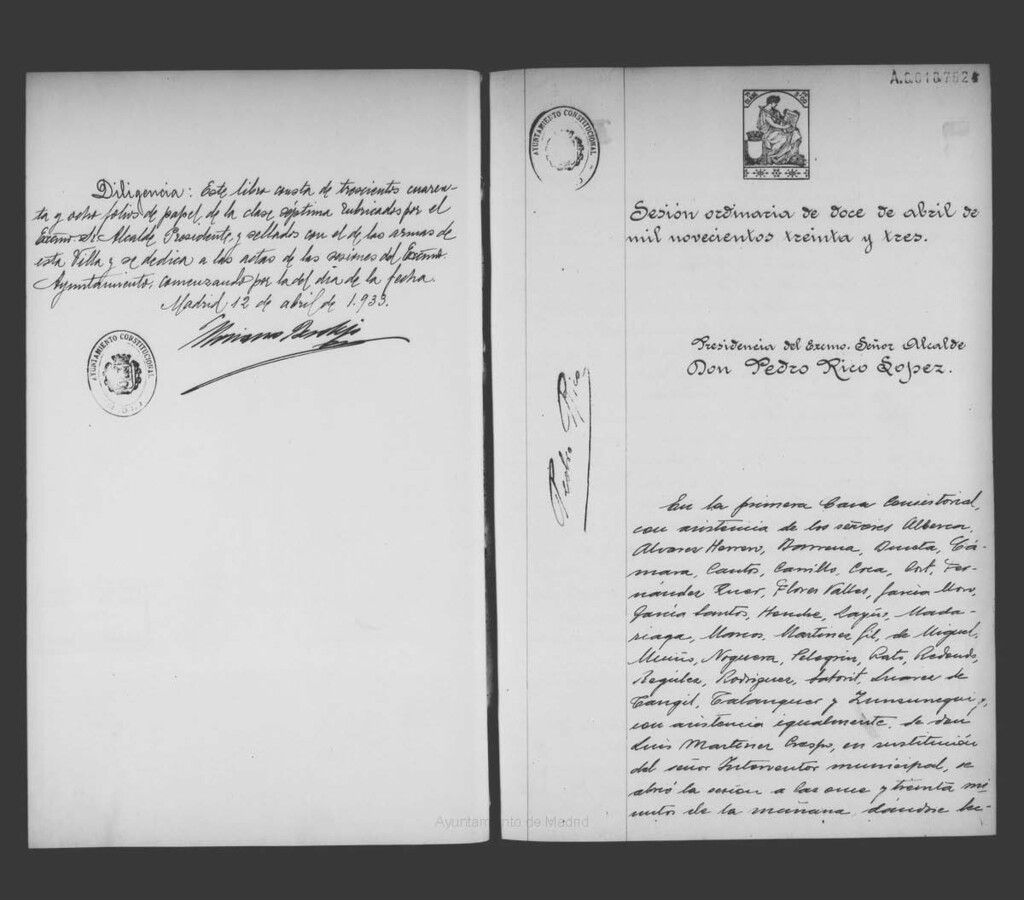 Diligencia: Este libro consta de trescientos cuaren-
ta y ocho folios de papel de la clase séptima rubricados por el
Excmo. Sr. Alcalde Presidente, y sellados con el de las armas de
esta Villa y se dedica a las actas de las sesiones del Excmo.
Ayuntamiento, comenzando por la del día de la fecha.
Madrid 12 de abril de 1.933.
AYUNTAMIENTO CONSTITUCIONAL
AYUNTAMIENTO CONSTITUCIONAL
Pedro Rico
Sesión ordinaria de doce de abril de
mil novecientos treinta y tres.
Presidencia del Excmo. Señor Alcalde
Don Pedro Rico López.
En la primera Casa Consistorial,
con asistencia de los señores Alberca,
Alvarez Herrero, Barrena, Buceta, Cá-
mara, Cantos, Carrillo, Coca, Cort, Fer-
nández Quer, Flores Valles, García Moro,
García Santos, Henche, Layús, Mada-
riaga, Marcos, Martínez Gil, de Miguel,
Muiño, Noguera, Pelegrín, Rato, Redondo,
Regúlez, Rodríguez, Saborit, Suarez de
Tangil, Talanquer y Zunzunegui y,
con asistencia igualmente de don
Luis Martínez Crespo, en sustitución
del señor Interventor municipal, se
abrió la sesión a las once y treinta mi-
nutos de la mañana dándose lec-
Ayuntamiento de Madrid